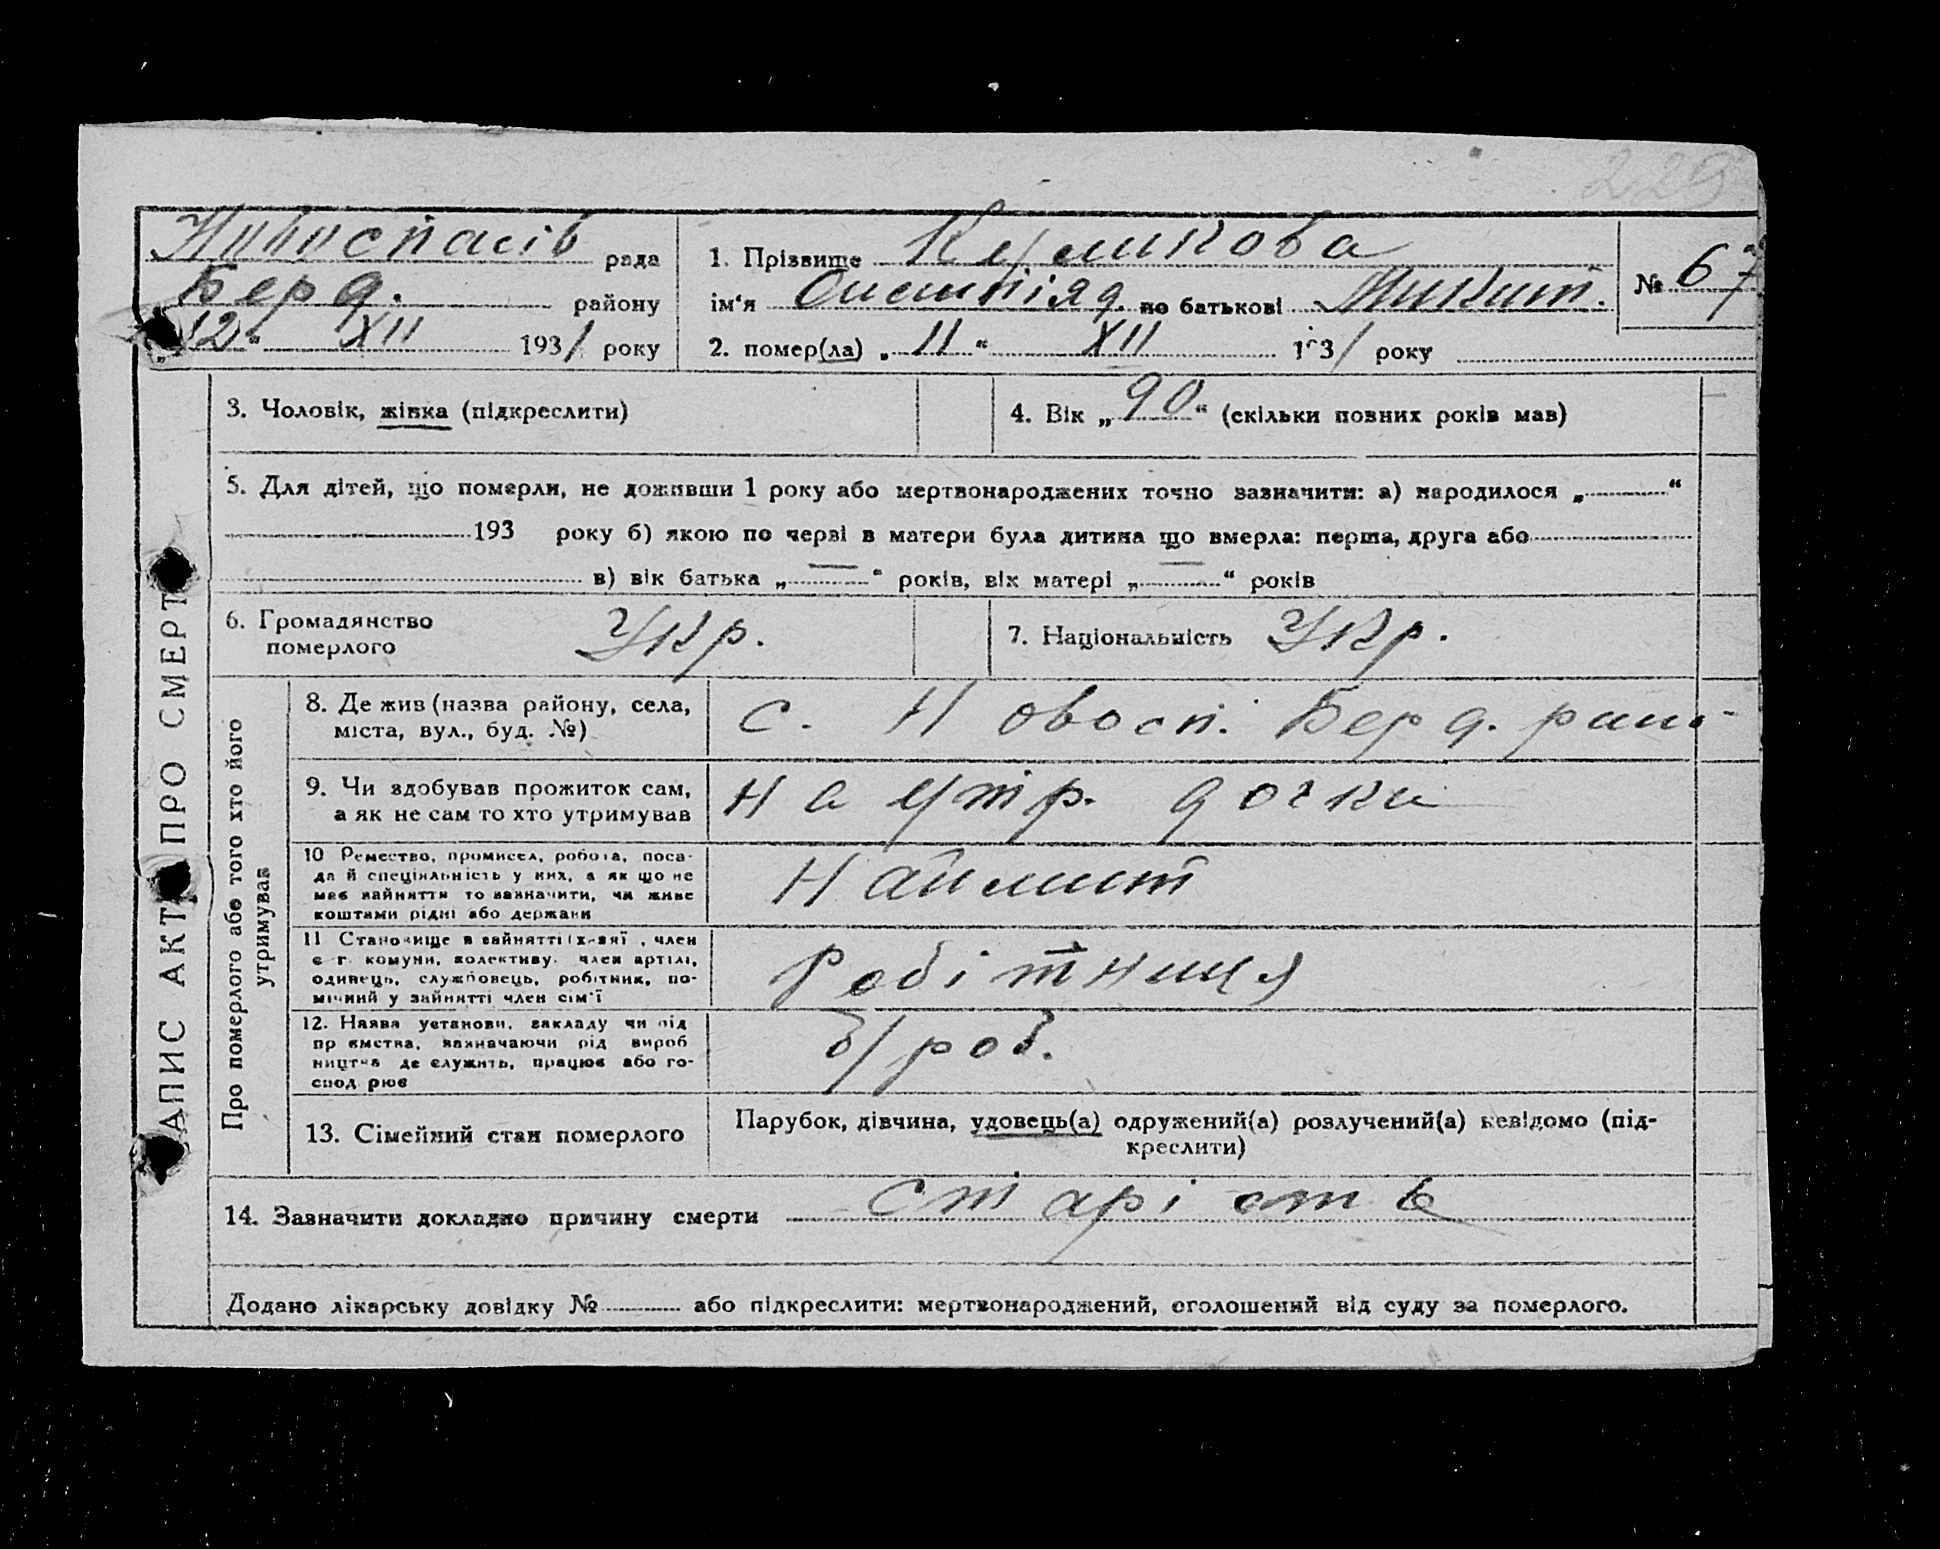 229
Новоспасів рада
Берд. району
„12“ XII 1931 року
1. Прізвище Курликова
ім‘я по батькові Микит.
№ 67
2. помер(ла) „11“ XII 1931 року
3. Чоловік, жінка (підкреслити)
4. Вік „90“ (скільки повних років мав)
5. Для дітей, що померли, не доживши 1 року або мертвонароджених точно зазначити: а) народилося „ “
193 року б) якою по черзі в матери була дитина що вмерла: перша, друга або
в) вік батька „—“ років, вік матері „—“ років
6. Громадянство
померлого Укр.
7. Національність Укр.
ЗАПИС АКТУ ПРО СМЕРТЬ
Про померлого або того хто його
утримував
8. Де жив (назва району, села,
міста, вул., буд. №)
с. Новосп. Берд. рай-
9. Чи здобував прожиток сам,
а як не сам то хто утримував
на утр. дочки
10 Ремество, промисел, робота, поса-
да й спеціяльність у них, а як що не
має зайняття то зазначити, чи живе
коштами рідні або держави
Наймит
11 Становище в зайнятті (х-зяї , член
с г. комуни, колективу. член артілі,
одинець, службовець, робітник, по-
мічний у зайнятті член сім‘ї
Робітниця
12. Назва установи, закладу чи під
пр ємства, зазначаючи рід вироб
ництва де служить, працює або го-
спод рює
б/роб.
13. Сімейний стан померлого
Парубок, дівчина, удовець(а) одружений(а) розлучений(а) невідомо (під-
креслити)
14. Зазначити докладно причину смерти старість
Додано лікарську довідку № або підкреслити: мертвонароджений, оголошений від суду за померлого.